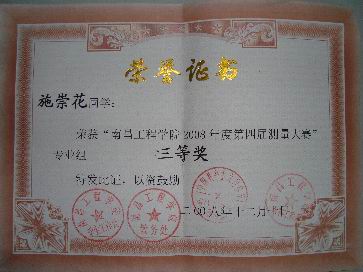 荣誉证书
施崇花同学：
荣获“南昌工程学院2008年度第四届测量大赛”
专业组 三等奖
特发此证，以资鼓励
二00八年十二月